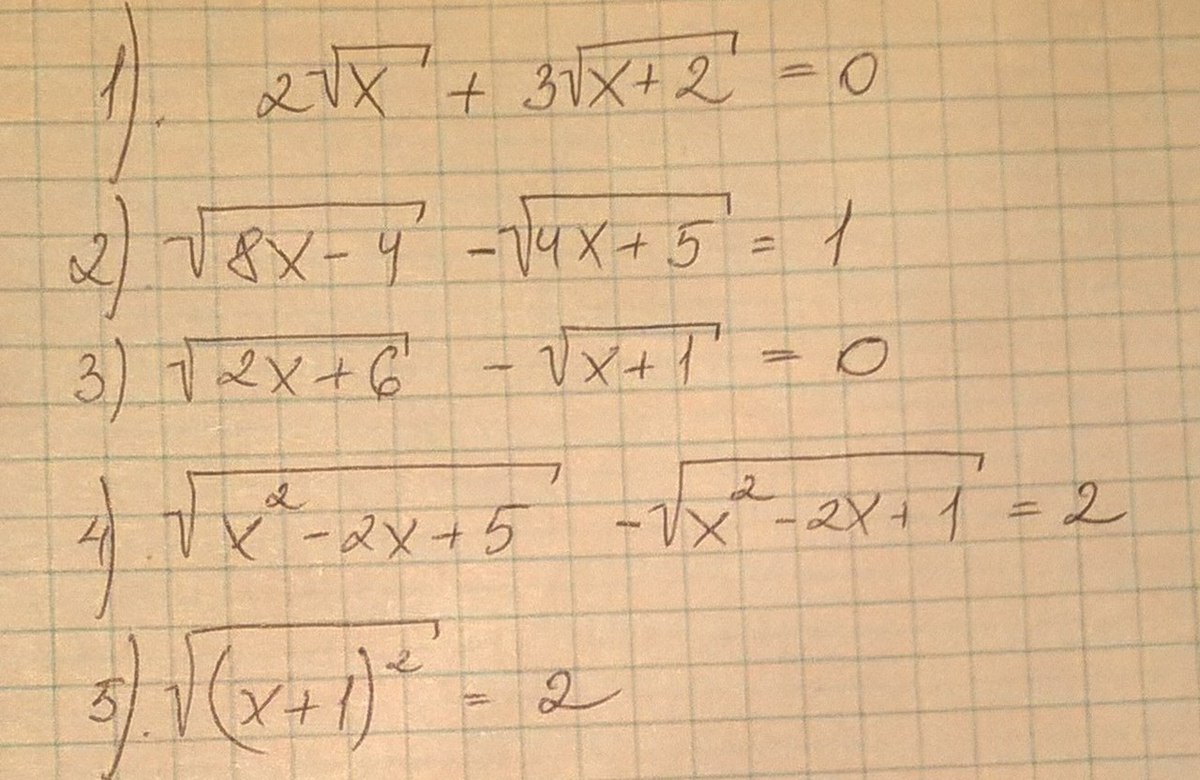 1). 2√x + 3√(x+2) = 0
2) √(8x-4) -√(4x+5) = 1
3) √(2x+6) -√(x+1) = 0
4) √(x²-2x+5) -√(x²-2x+1) = 2
5). √((x+1)²) = 2